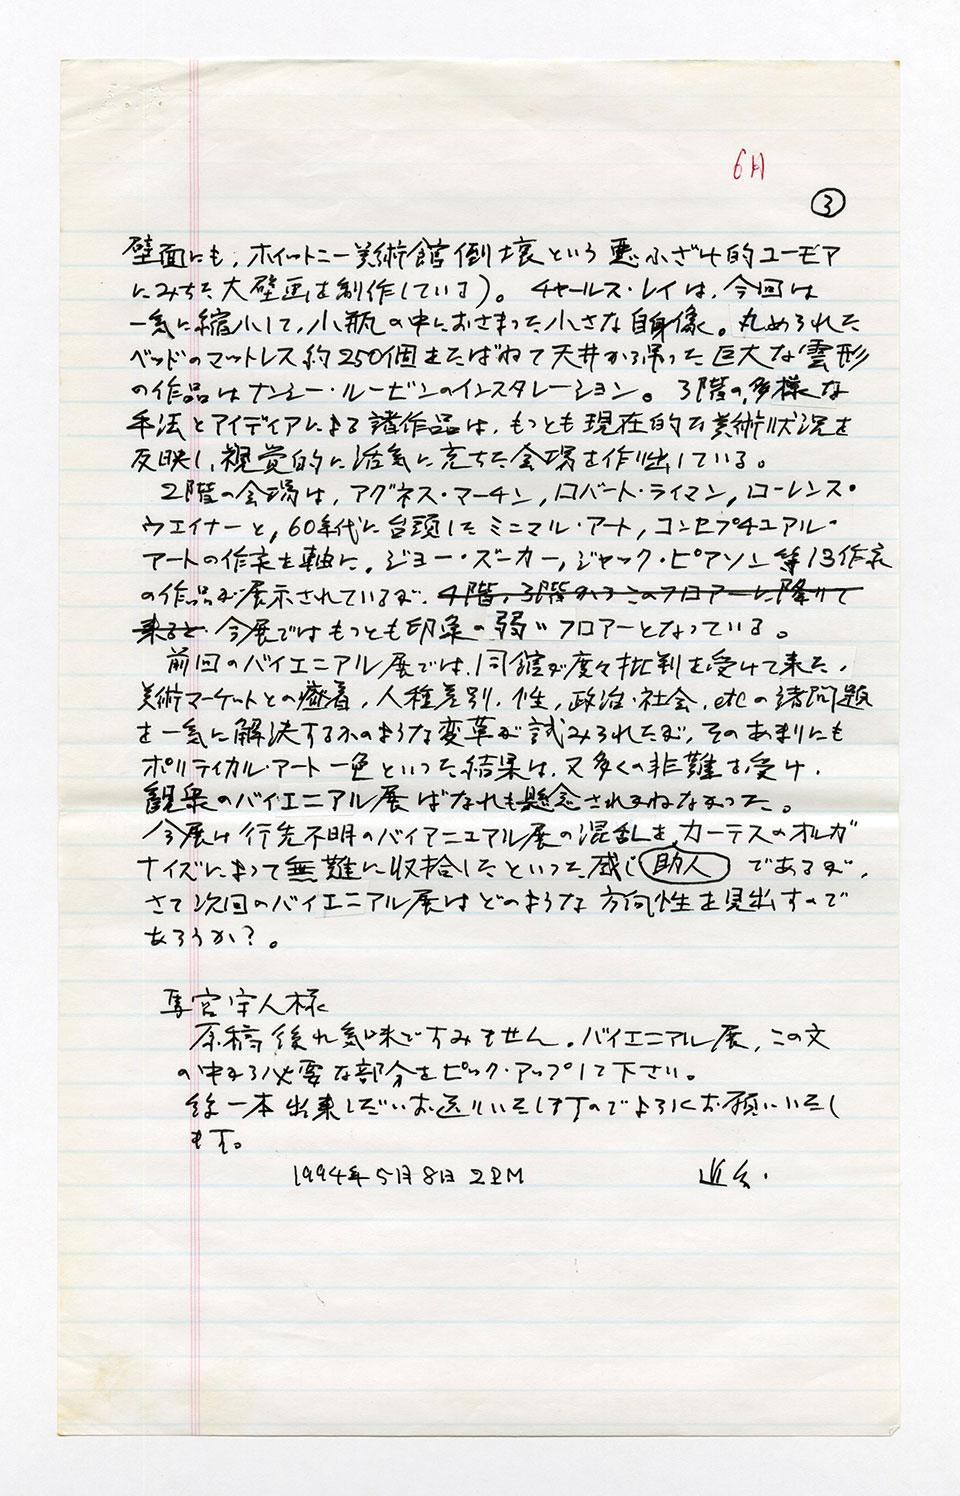 6月
③
壁面にも、ホイットニー美術館倒壊という悪ふざけ的ユーモア
にみちた大壁画を制作している)。チャールス・レイは、今回は
一気に縮小して、小瓶の中におさまった小さな自身像。丸められた
ベッドのマットレス約250個をたばねて天井から吊った巨大な雲形
の作品はナンシー・ルービンのインスタレーション。3階の、多様な
手法とアイディアによる諸作品は、もっとも現在的な美術状況を
反映し、視覚的に活気に充ちた会場を作り出している。
2階の会場は、アグネス・マーチン,ロバート・ライマン,ローレンス・
ウエイナーと,60年代に台頭したミニマル・アート,コンセプチュアル・
アートの作家を軸に、ジョー・ズーカー,ジャック・ピアソン等13作家
の作品が展示されているが、4階、3階からこのフロアーに降りて
来ると今展ではもっとも印象の弱いフロアーとなっている。
前回のバイエニアル展では、同館が度々批判を受けて来た、
美術マーケットとの癒着,人種差別,性,政治・社会,etcの諸問題
を一気に解決するかのような変革が試みられたが、そのあまりにも
ポリティカル・アート一色といった結果は、又多くの非難を受け、
観衆のバイエニアル展ばなれも懸念されかねなかった。
今展は行先不明のバイアニュアル展の混乱を、カーテスのオルガ
ナイズによって無難に収拾したといった感じ 助人 であるが、
さて次回のバイエニアル展はどのような方向性を見出すので
あろうか?。
馬宮守人様
原稿後れ気味ですみません。バイエニアル展、この文
の中から必要な部分をピック・アップして下さい。
後一本出来しだいお送りいたしますのでよろしくお願いいたし
ます。
1994年5月8日 2PM 近会.